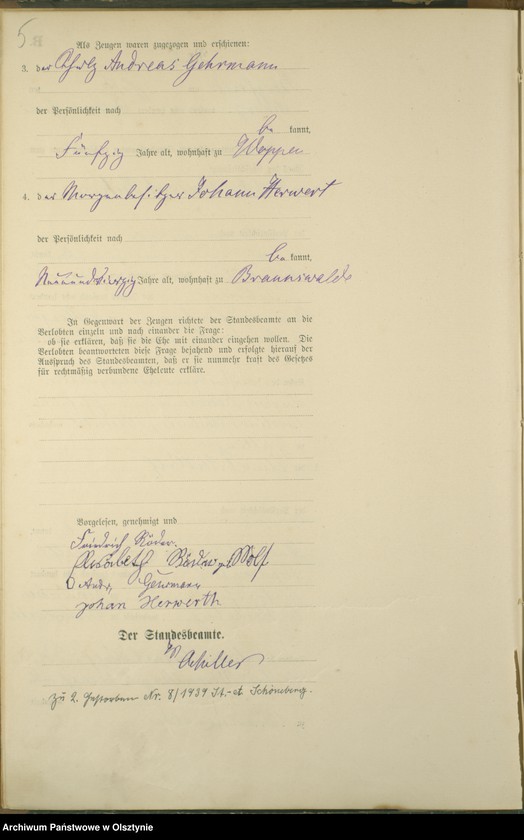 5
Als Zeugen waren zugezogen und erschienen:
3. der Andreas Gehrmann
der Persönlichkeit nach
be kannt,
Fünfzig Jahre alt, wohnhaft zu Woppen
4. der Morgenbesitzer Johann Herwert
der Persönlichkeit nach
be kannt,
Neunundvierzig Jahre alt, wohnhaft zu Braunswalde
In Gegenwart der Zeugen richtete der Standesbeamte an die
Verlobten einzeln und nach einander die Frage:
ob sie erklären, daß sie die Ehe mit einander eingehen wollen. Die
Verlobten beantworteten diese Frage bejahend und erfolgte hierauf der
Ausspruch des Standesbeamten, daß er sie nunmehr kraft des Gesetzes
für rechtmäßig verbundene Eheleute erkläre.
Vorgelesen, genehmigt und
Friedrich Röder.
Elisabeth Wolf
Andr. Gehrmann
Johan Herwerth
Der Standesbeamte.
Achiller
Zu 2. Gestorben Nr. 8/1939 St.-A Schöneberg.
Archiwum Państwowe w Olsztynie